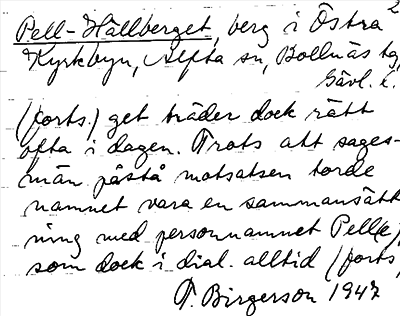 2
Pell-Hällberget, berg i Östra
Kyrkbyn, Alfta sn, Bollnäs tg,
Gävl. l.
(forts.) get träder dock rätt
ofta i dagen. Trots att sages-
män påstå motsatsen torde
namnet vara en sammansätt-
ning med personnamnet Pell(e),
som dock i dial. alltid (forts.)
T. Birgerson 1947